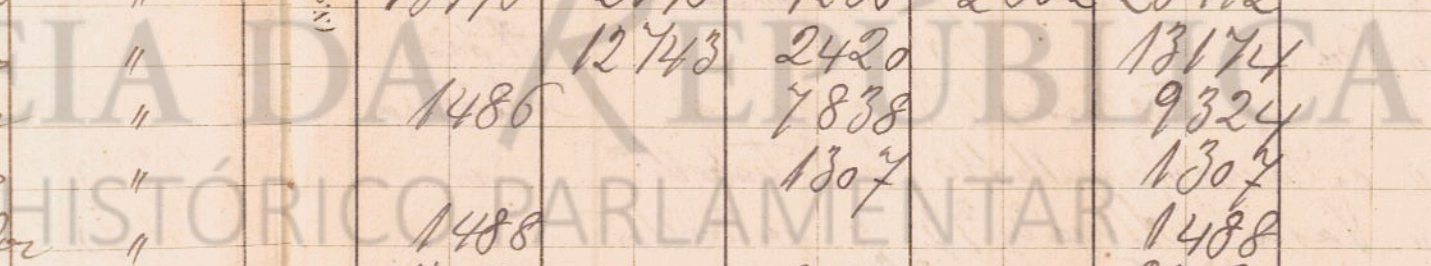 " 12743 2420 13174
" 1486 7838 9324
" 1307 1307
" 1488 1488
EIA DA REPÚBLICA
HISTÓRICO PARLAMENTAR